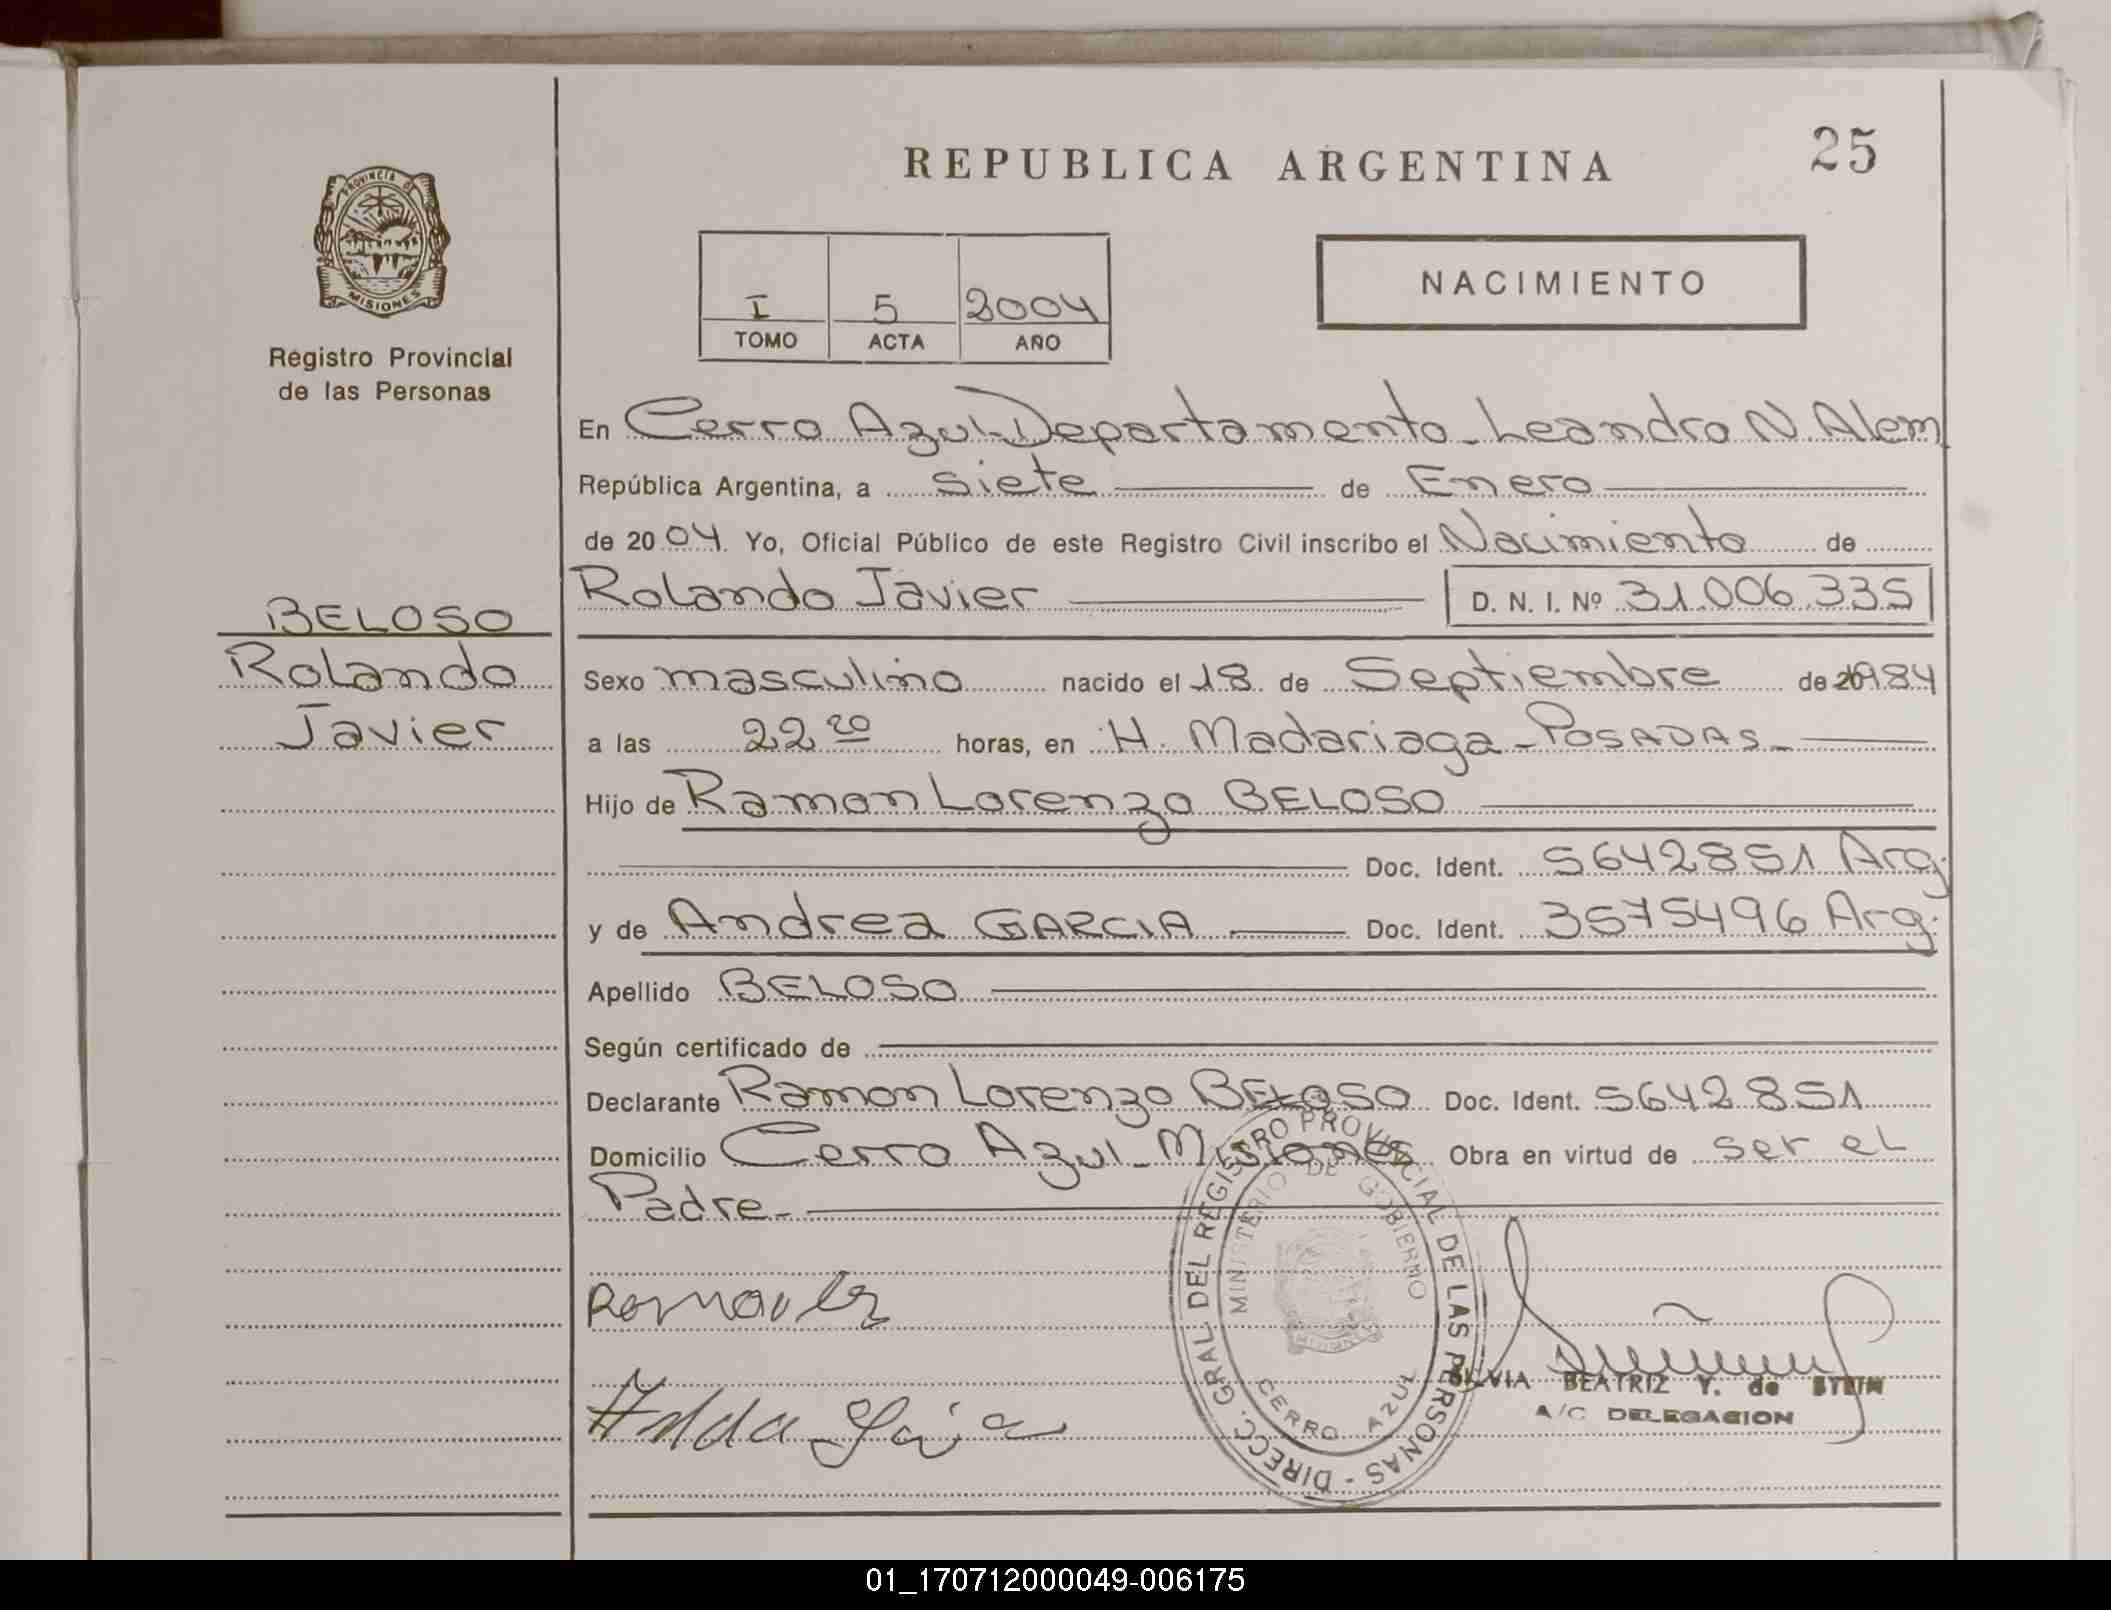 25
REPUBLICA ARGENTINA
PROVINCIA DE
MISIONES
Registro Provincial
de las Personas
I 5 2004
TOMO ACTA AÑO
NACIMIENTO
En Cerro Azul-Departamento-Leandro N. Alem
República Argentina, a siete de Enero
de 2004. Yo, Oficial Público de este Registro Civil inscribo el Nacimiento de
Rolando Javier D. N. I. Nº 31.006.335
BELOSO
Rolando
Javier
Sexo masculino nacido el 18 de Septiembre de 1984
a las 22 20 horas, en H. Madariaga-POSADAS-
Hijo de Ramon Lorenzo BELOSO
Doc. Ident. 5642851 Arg.
y de Andrea GARCIA Doc. Ident. 3575496 Arg.
Apellido BELOSO
Según certificado de
Declarante Ramon Lorenzo BELOSO Doc. Ident. 5642851
Domicilio Cerro Azul-Misiones Obra en virtud de ser el
Padre-
DIRECC. GRAL. DEL REGISTRO PROVINCIAL DE LAS PERSONAS -
MINISTERIO DE GOBIERNO
CERRO AZUL
SILVIA BEATRIZ Y. de STEIN
A/C DELEGACION
01_170712000049-006175